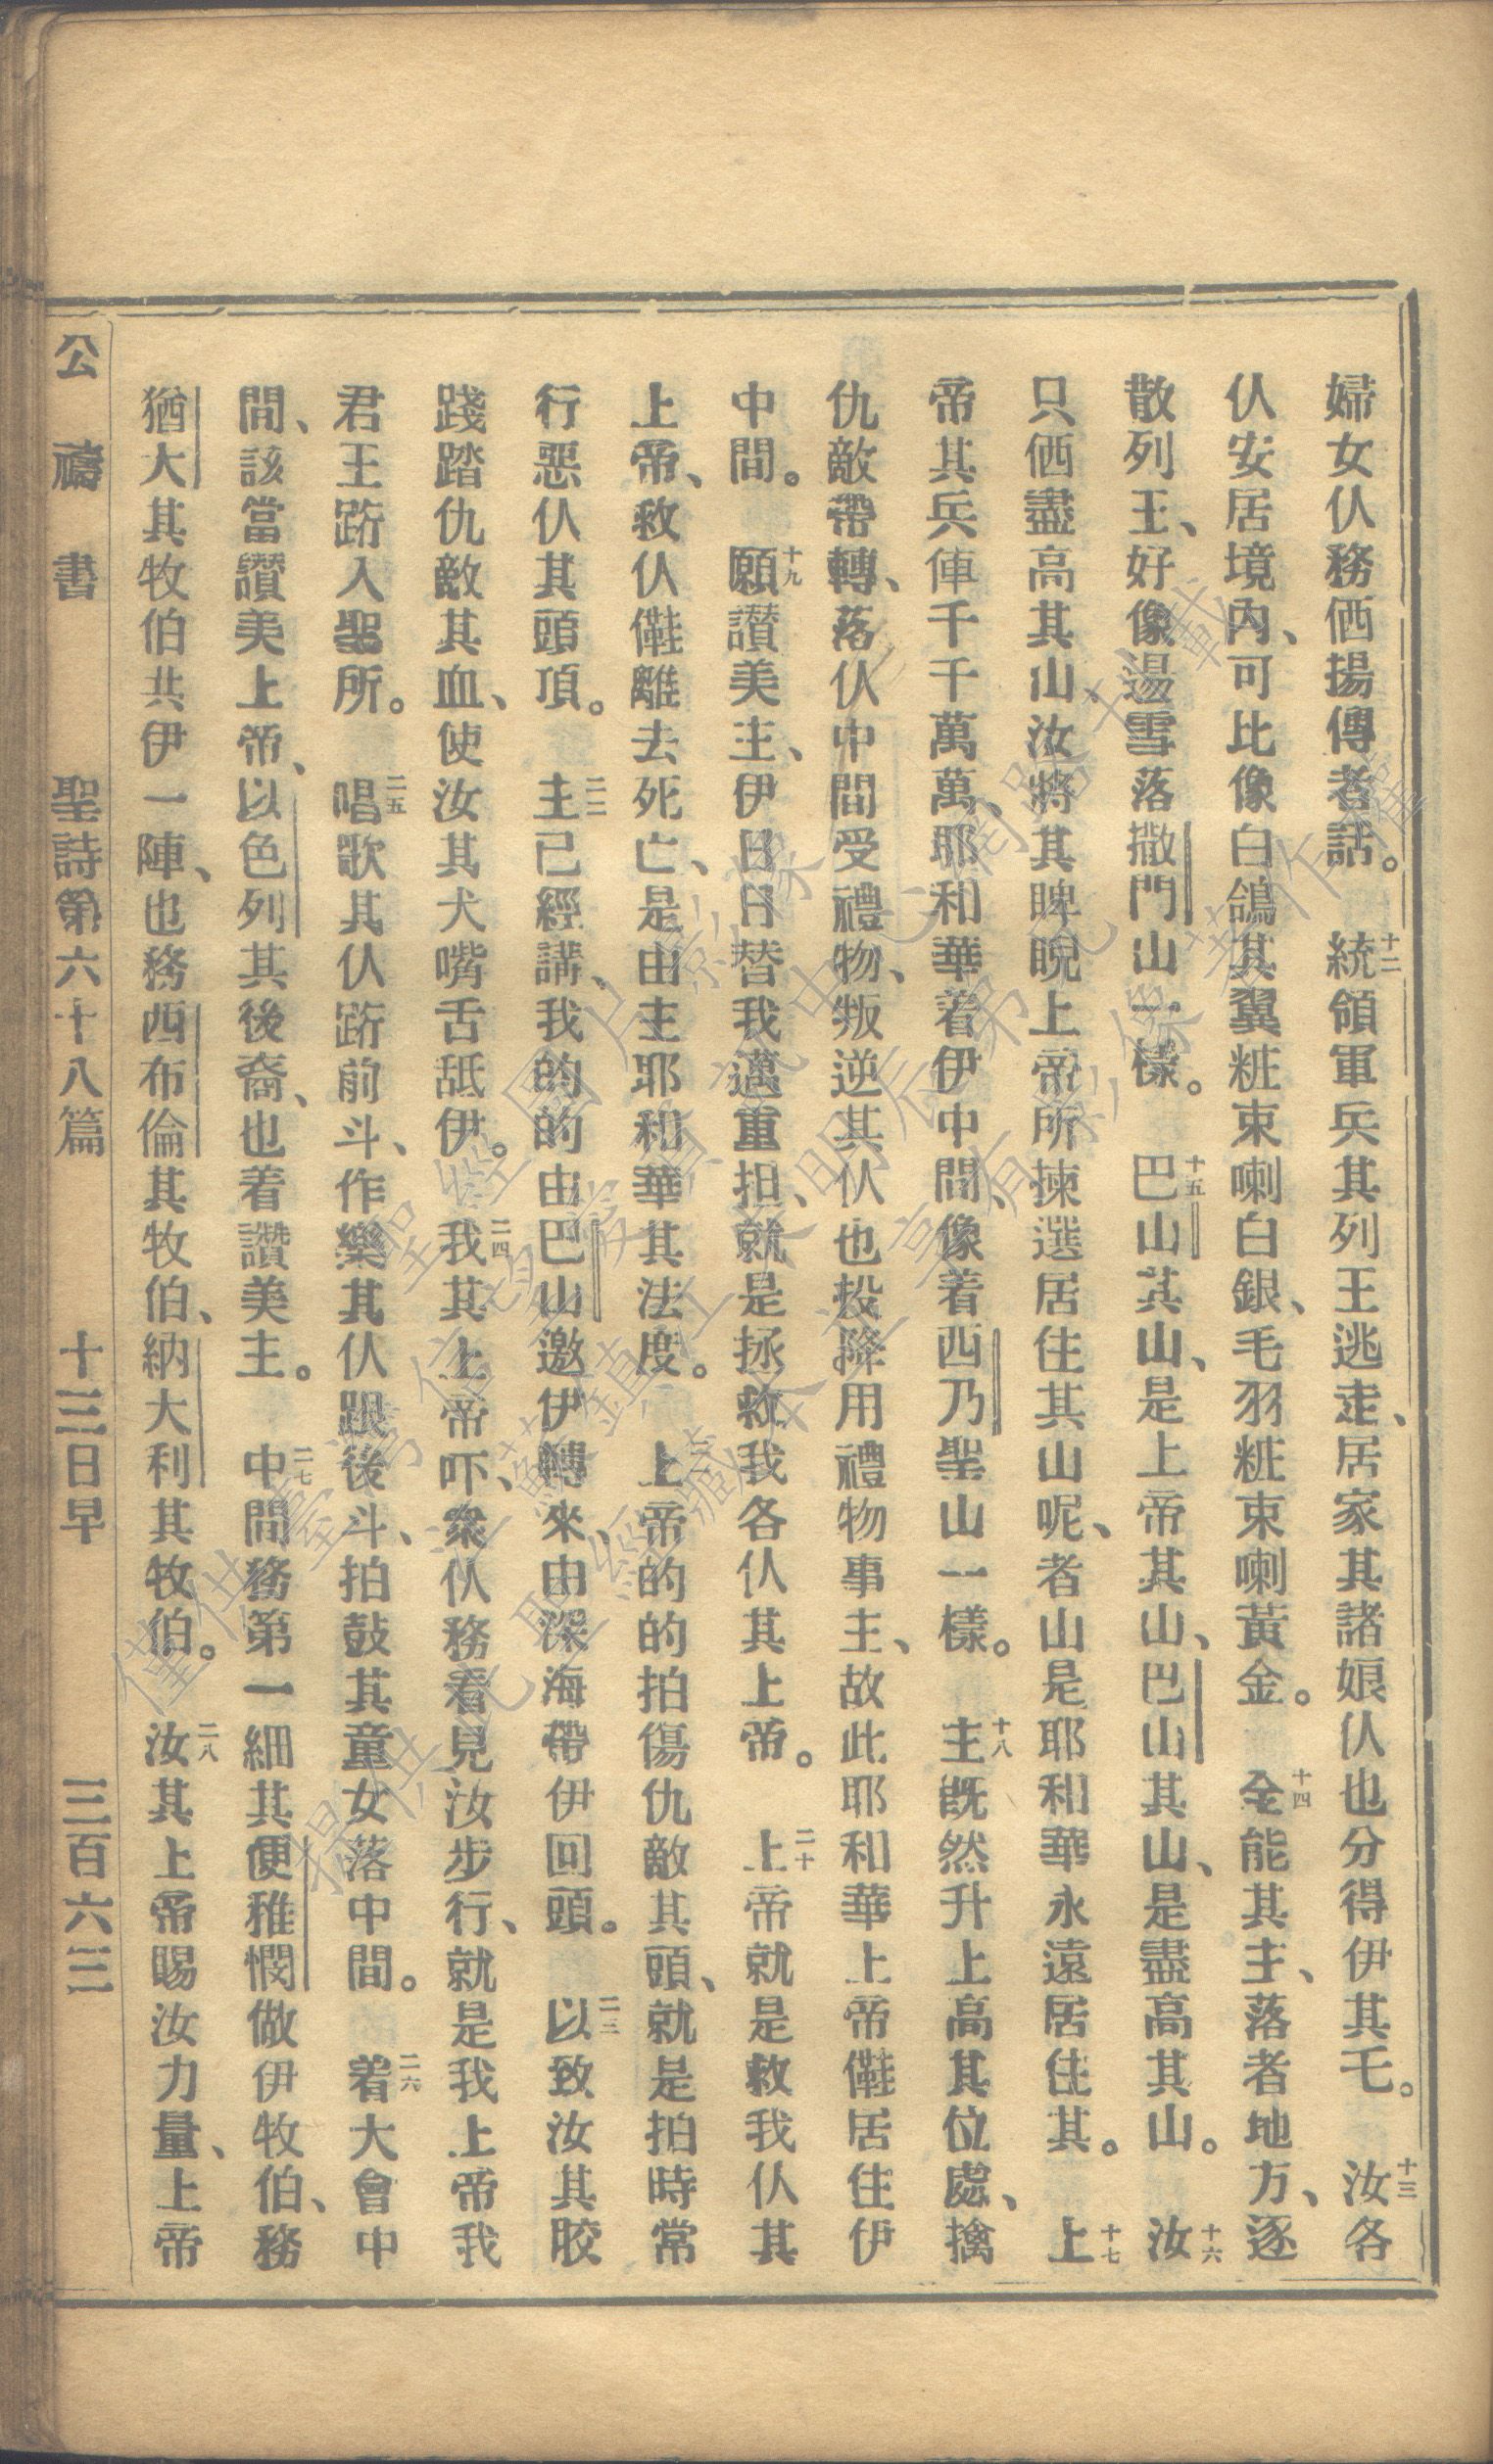 婦女仈務価揚傳者話。十二統領軍兵其列王逃走、居家其諸娘仈也分得伊其乇。十三汝各
仈安居境內、可比像白鴿其翼粧束喇白銀、毛羽粧束喇黃金。十四全能其主、落者地方、逐
散列王、好像湯雪落撒門山一樣。十五巴山其山、是上帝其山、巴山其山、是盡高其山。十六汝
只価盡高其山汝將其睥睨上帝所揀選居住其山呢、者山是耶和華永遠居住其。十七上
帝其兵俥千千萬萬、耶和華着伊中間、像着西乃聖山一樣。十八主既然升上高其位處、擒
仇敵帶轉、落仈中間受禮物、叛逆其仈也投降用禮物事主、故此耶和華上帝居住伊
中間。十九願讚美主、伊日日替我邁重担、就是拯救我各仈其上帝。二十上帝就是救我仈其
上帝、救仈離去死亡、是由主耶和華其法度。上帝的的拍傷仇敵其頭、就是拍時常
行惡仈其頭頂。二二主已經講、我的的由巴山邀伊轉來、由深海帶伊回頭。二三以致汝其骹
踐踏仇敵其血、使汝其犬嘴舌舐伊。二四我其上帝吓、衆仈務看見汝步行、就是我上帝我
君王跻入聖所。二五唱歌其仈跻前斗、作樂其仈跟後斗、拍鼓其童女落中間。二六着大會中
間、該當讚美上帝、以色列其後裔、也着讚美主。二七中間務第一細其便雅憫做伊牧伯、務
猶大其牧伯共伊一陣、也務西布倫其牧伯、納大利其牧伯。二八汝其上帝賜汝力量、上帝
公禱書 聖詩第六十八篇 十三日早 三百六三